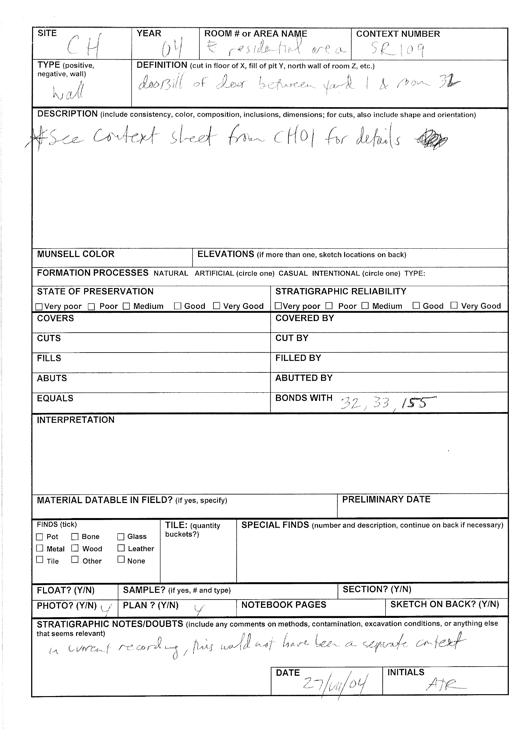 SITE CH YEAR 04 ROOM # or AREA NAME E residential area CONTEXT NUMBER SR109
TYPE (positive, negative, wall) wall DEFINITION (cut in floor of X, fill of pit Y, north wall of room Z, etc.)
doorsill of door between yard 1 & room 32
DESCRIPTION (include consistency, color, composition, inclusions, dimensions; for cuts, also include shape and orientation)
*See context sheet from CH01 for details
MUNSELL COLOR ELEVATIONS (if more than one, sketch locations on back)
FORMATION PROCESSES NATURAL ARTIFICIAL (circle one) CASUAL INTENTIONAL (circle one) TYPE:
STATE OF PRESERVATION STRATIGRAPHIC RELIABILITY
☐ Very poor ☐ Poor ☐ Medium ☐ Good ☐ Very Good ☐ Very poor ☐ Poor ☐ Medium ☐ Good ☐ Very Good
COVERS COVERED BY
CUTS CUT BY
FILLS FILLED BY
ABUTS ABUTTED BY
EQUALS BONDS WITH 32, 33, 155
INTERPRETATION
MATERIAL DATABLE IN FIELD? (if yes, specify) PRELIMINARY DATE
FINDS (tick) TILE: (quantity buckets?) SPECIAL FINDS (number and description, continue on back if necessary)
☐ Pot ☐ Bone ☐ Glass
☐ Metal ☐ Wood ☐ Leather
☐ Tile ☐ Other ☐ None
FLOAT? (Y/N) SAMPLE? (if yes, # and type) SECTION? (Y/N)
PHOTO? (Y/N) y PLAN ? (Y/N) y NOTEBOOK PAGES SKETCH ON BACK? (Y/N)
STRATIGRAPHIC NOTES/DOUBTS (include any comments on methods, contamination, excavation conditions, or anything else
that seems relevant)
in current recording, this would not have been a separate context
DATE 27/VII/04 INITIALS ATR